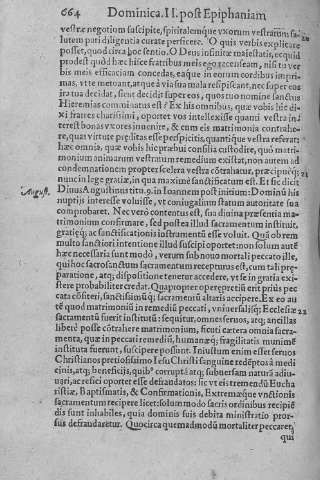 664 Dominica. II. post Epiphaniam
vestræ negotium suscipite, spiritalemque vxorum vestrarum sa- 20
lutem pari diligentia curate perficere. O quis verbis explicare
posset, quod circa hoc sentio. O Deus infinitæ maiestatis, ecquid
prodest quòd hæc hisce fratribus meis ego recenseam, nisi tu ver
bis meis efficaciam concedas, eaque in eorum cordibus impri-
mas, vt te metuant, atque à via sua mala resipiscant, nec super eos
ira tua decidat, sicut decidit super eos, quos tuo nomine sanctus
Hieremias comminatus est? Ex his omnibus, quæ vobis hîc di-
xi fratres charissimi, oportet vos intellexisse quanti vestra in-
terest bonas vxores inuenire, & cum eis matrimonia contrahe-
re, quæ virtute præditas esse perspicitis, quantique vestra referat;
hæc omnia, quæ vobis hîc præbui consilia custodire, quò matri-
monium animarum vestratum remedium existat, non autem ad
condemnationem propter scelera vestra cōtrahatur, præcipuéq;
nunc in lege gratiæ, in qua maximè sanctificatum est. Et sic dicit
August. Diuus Augustinus tit. 9. in Ioannem post initium: Dominū his
nuptijs interesse voluisse, vt coniugalium statum autoritate sua
comprobaret. Nec verò contentus est, sua diuina præsentia ma-
trimonium confirmare, sed postea illud sacramentum instituit,
gratięq; ac sanctificationis instrumentū esse voluit. Quā ob rem
multo sanctiori intentione illud suscipi oportet: non solum autē
hæc necessaria sunt modò, verum sub nouo mortali peccato ille,
qui hoc sacrosanctum sacramentum recepturus est, cum tali præ-
paratione, atq; dispositione tenetur accedere, vt se in gratia exi-
stere probabiliter credat. Quapropter operæpretiū erit priùs pec-
cata cōfiteri, sanctissimūq; sacramentū altaris accipere. Ex eo au
tē quod matrimoniū in remediū peccati, vniuersalisq; Ecclesiæ 22
sacramentū fuerit institutū: sequitur, omnes seruos, atq; ancillas
liberè posse cōtrahere matrimonium, sicuti cætera omnia sacra-
menta, quæ in peccati remediū, humanæq; fragilitatis munimē
instituta fuerunt, suscipere possunt. Iniustum enim esset seruos
Christianos pretiosissimo Iesu Christi sanguine redēptos à medi
cinis, atq; beneficijs, quibꝰ corruptā atq; subuersam naturā adiu-
uari, ac refici oportet esse defraudatos: sic vt eis tremendū Eucha
ristiæ, Baptismatis, & Confirmationis, Extremæque vnctionis
sacramentum recipere licet: solùm modo sacris ordinibus recipiē
dis sunt inhabiles, quia dominis suis debita ministratio pror-
sus defraudaretur. Quocirca quemadmodū mortaliter peccaret,
qui